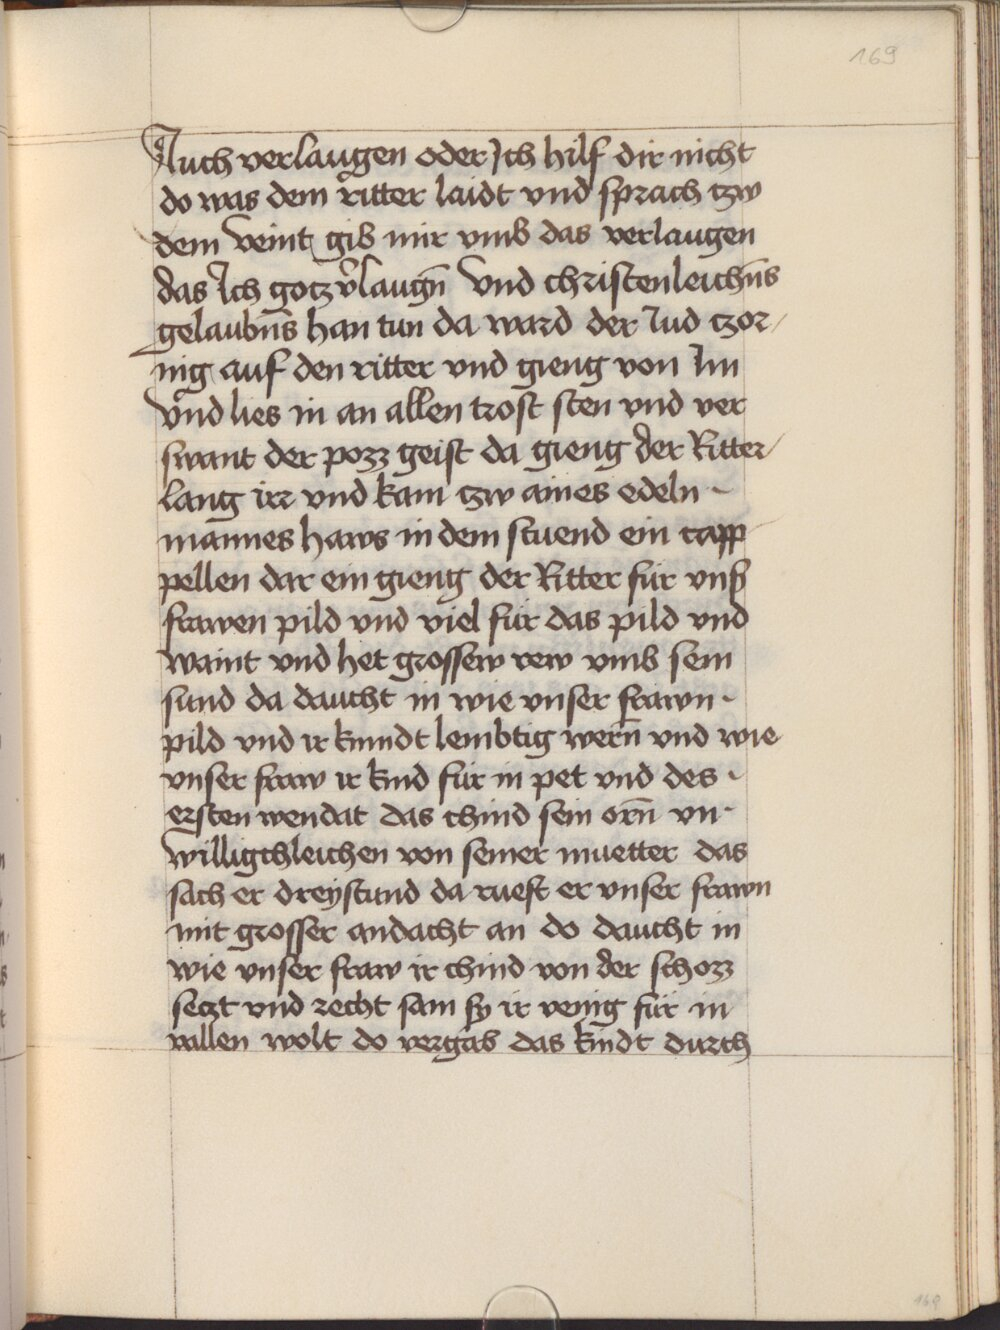 169
Auch verlaugen oder Ich hilf dir nicht
do was dem ritter laidt vnd sprach czw
dem veint gib mir vmb das verlaugen
das Ich gotz v̄laugn̄ Vnd christenleichn̄s
gelaubn̄s han tun da ward der Iud czor/
nig auf den ritter vnd gieng von Im
Vnd lies in an allen trost sten vnd ver
swant der pozz geist da gieng der Ritter/
lang irr vnd kam czw aines edeln -
mannes haws in dem stuend ein capp
pellen dar ein gieng der Ritter für vnß
frawen pild vnd viel für das pild vnd
waint vnd het grossew rew vmb sein
sund da daucht in wie vnser frawn -
pild vnd ir kinndt lembtig wern̄ vnd wie
vnser fraw ir kind für in pet vnd des -
ersten wendat das chind sein orn̄ vn -
willigchleichen von seiner muetter das
sach er dreystund da rueft er vnser frawn
mit grosser andacht an do daucht in
wie vnser fraw ir chind von der schozz
seczt vnd recht sam sy ir venig für in
vallen wolt do vergab das kindt durch
169